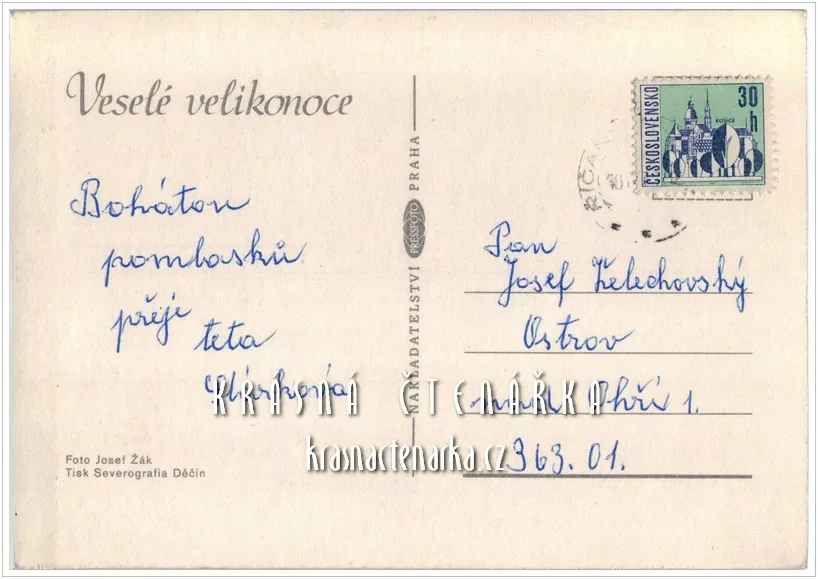 Veselé velikonoce
Bohatou
pomlasků
přeje
teta
NAKLADATELSTVÍ PRESSFOTO PRAHA
ČESKOSLOVENSKO
30
h
KOŠICE
Pan
Josef Želechovský
Ostrov
nad Ohří 1.
363.01.
KRÁSNÁ ČTENÁŘKA
krasnactenarka.cz
Foto Josef Žák
Tisk Severografia Děčín